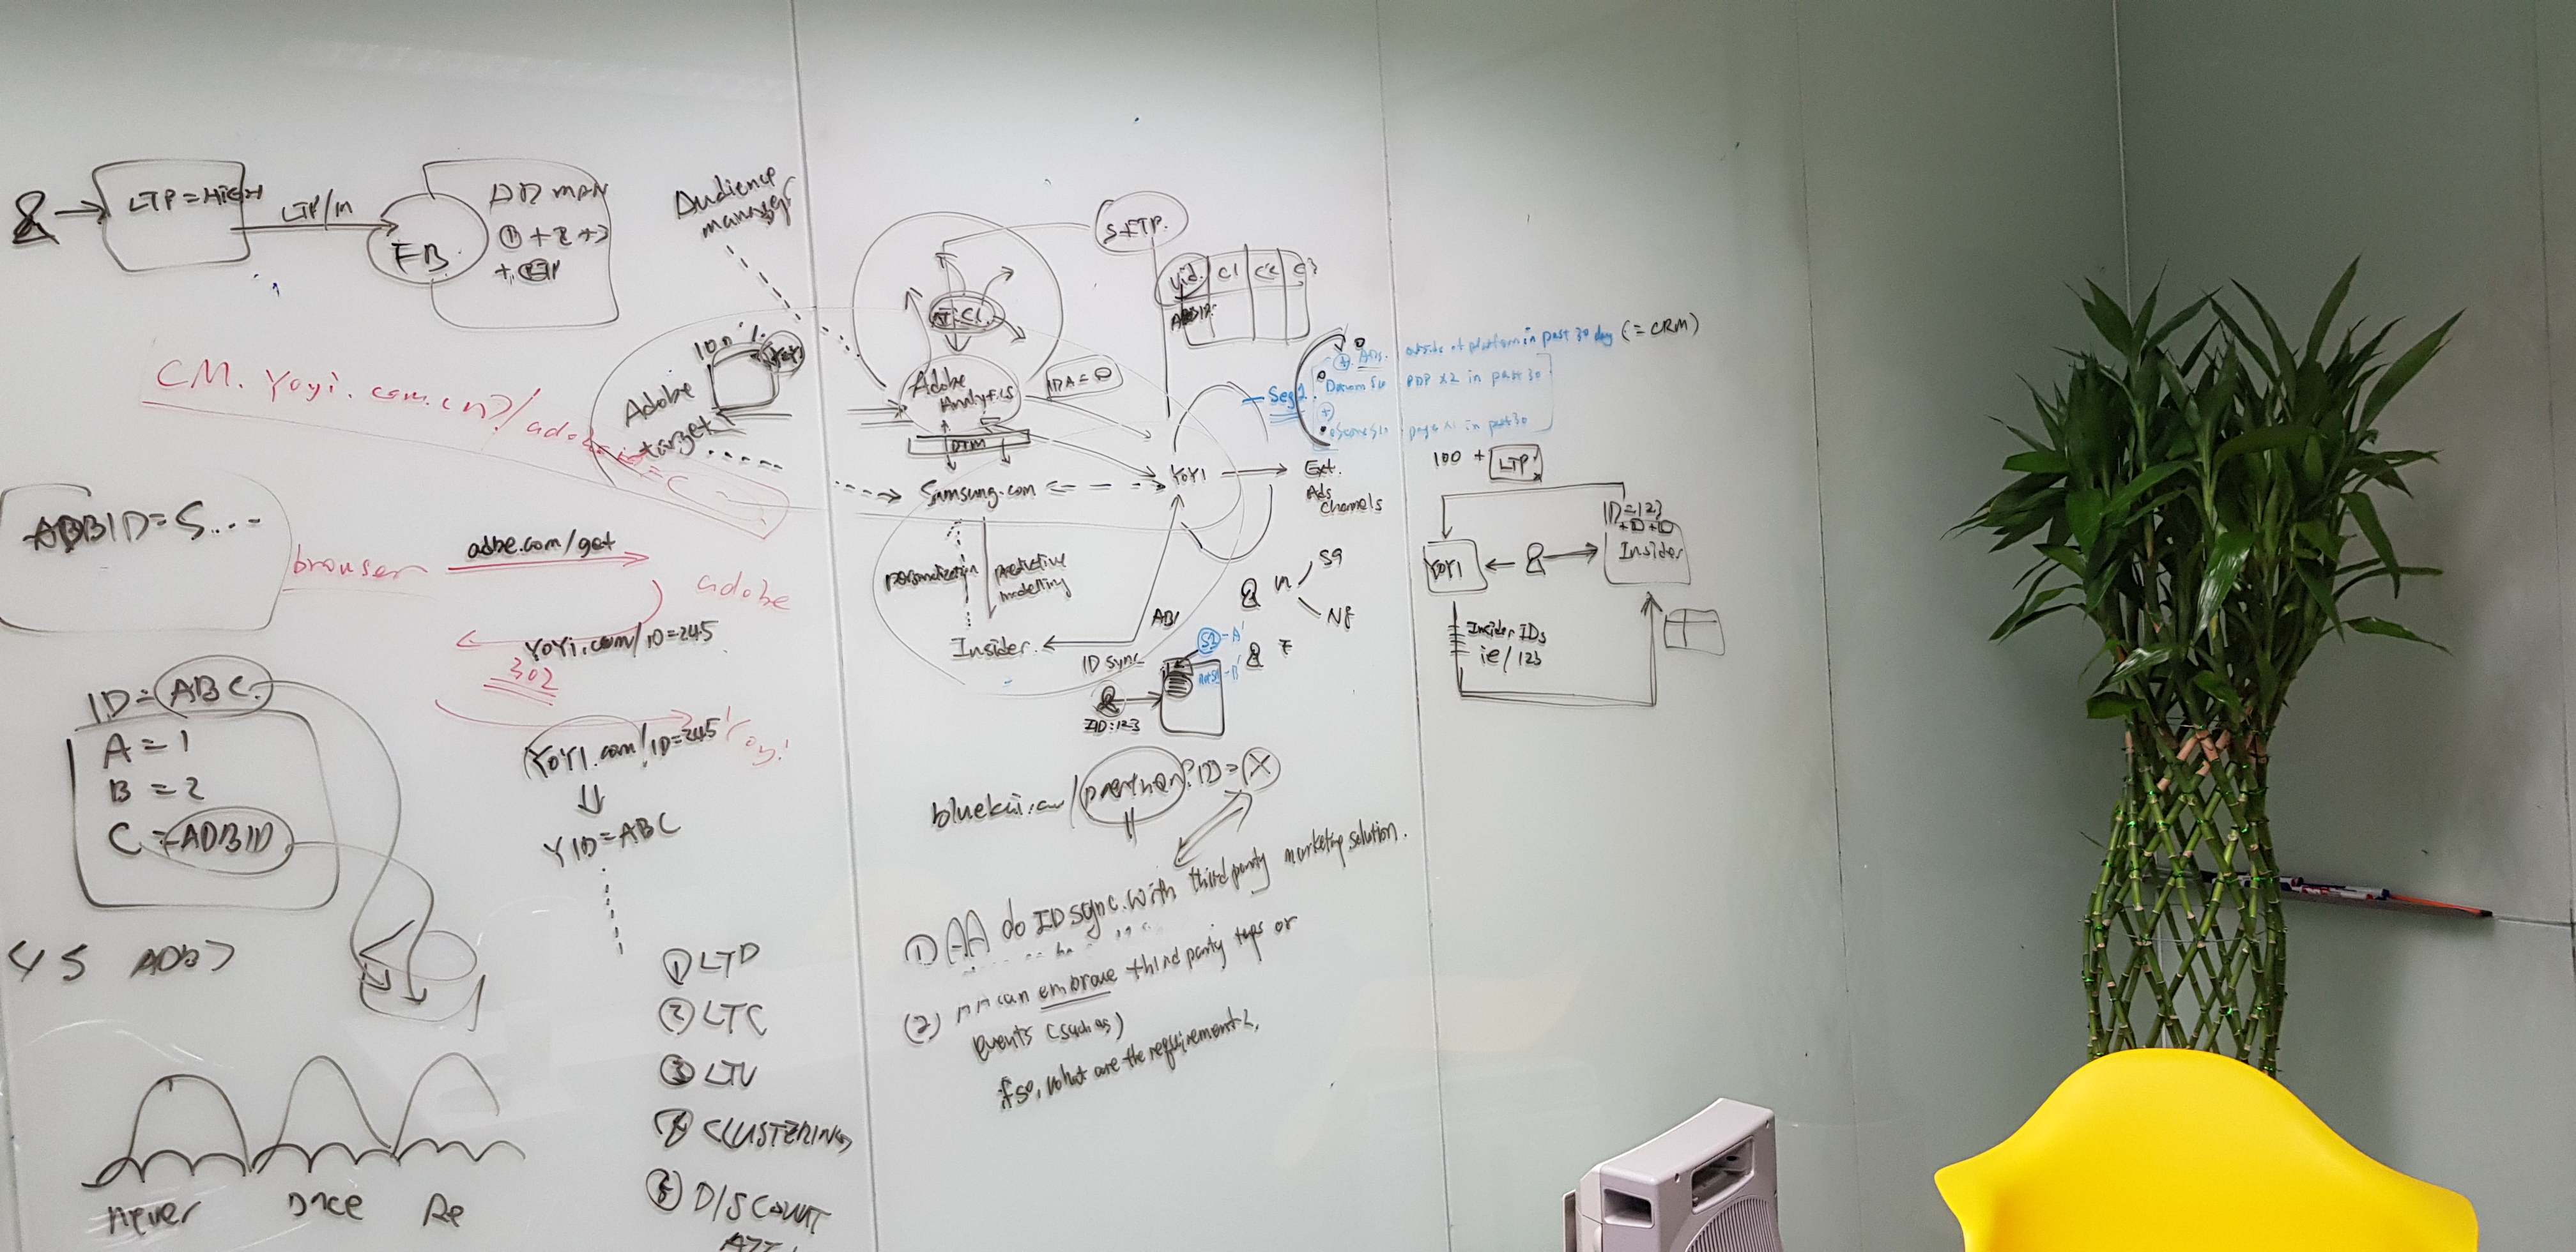 LTP = HIGH
LTP/M
FB.
AD MAN
① + 2 + 3
CM. Yoyi.com.cn?/adobe
ADBID = S...
browser
adbe.com/get
adobe
YOYi.com/ID=245
302
YOYI.com/ID=245
YID = ABC
ID = ABC.
A = 1
B = 2
C = ADBID
45 ADB>
never
Once
Re
① LTP
② LTC
③ LTV
④ CLUSTERING
⑤ DISCOUNT
Audience
manager
100%
YOYI
Adobe
target
Adobe
Analytics
DTM
Samsung.com
personalization
predictive
modelling
Insider.
ID sync
IID:123
SFTP.
Uid. C1 C2 C3
YOYI
Ext.
Ads
Channels
Seg2.
Ads. outside of platform in past 30 day (= CRM)
PDP x2 in past 30
page x1 in past 30
S2 - A'
- B'
n
SG
bluekai.com/partner?ID=X
① AA do ID sync. with third party marketing solution.
(2) AA can embrace third party tags or
events (such as)
if so, what are the requirements.
100 + LTP.
ID=123
Insider
YOYI
Insider IDs
ie/123